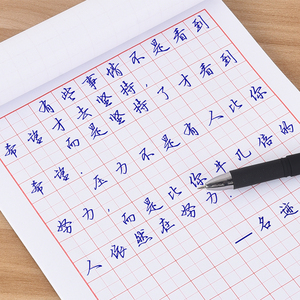 有些事情不是看到
希望才去坚持,
而是坚持了才看到
希望。压力不是有人比你
努力,而是比你牛几倍的
人依然在努力。
—名迹